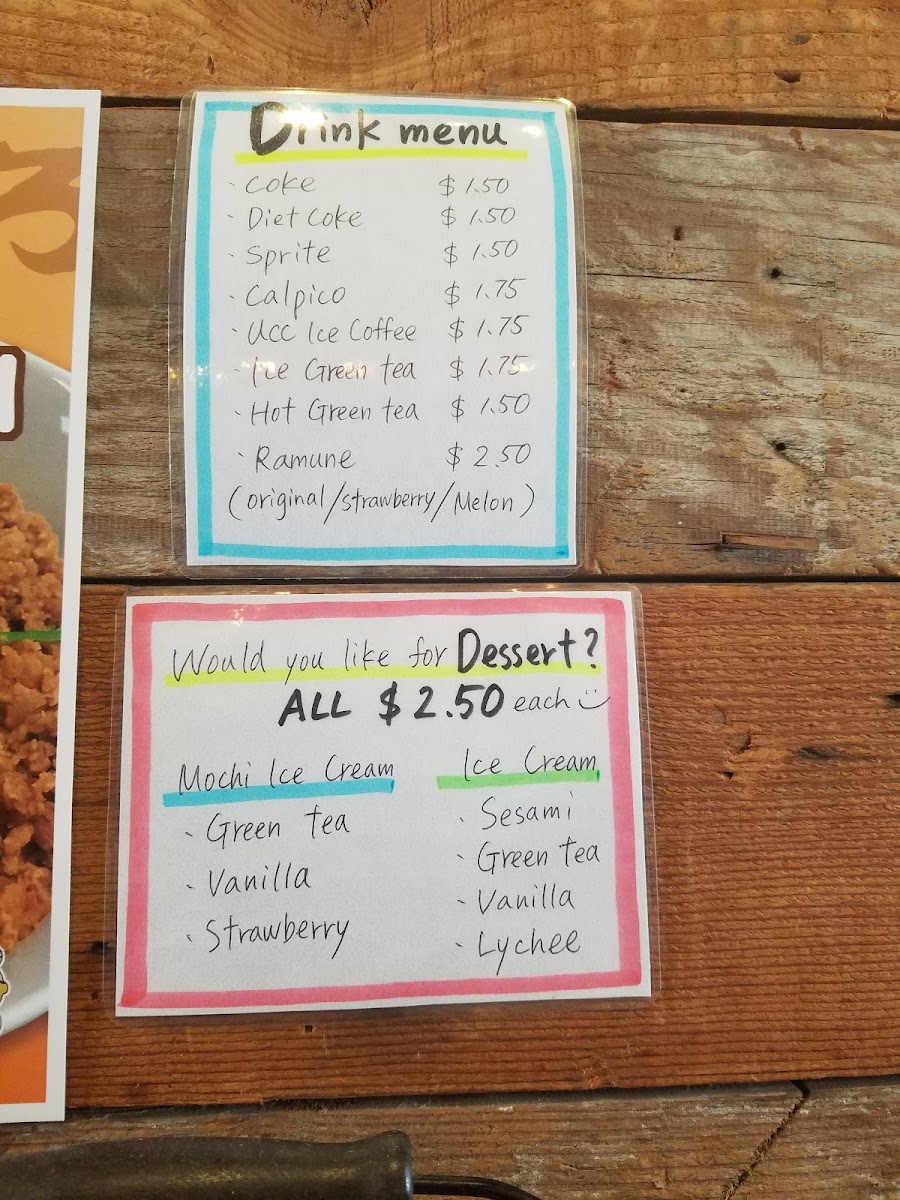 Drink menu
· Coke $1.50
· Diet Coke $1.50
· Sprite $1.50
· Calpico $1.75
· Ucc Ice Coffee $1.75
· Ice Green tea $1.75
· Hot Green tea $1.50
· Ramune $2.50
(original/strawberry/Melon)
Would you like for Dessert?
ALL $2.50 each
Mochi Ice Cream
· Green tea
· Vanilla
· Strawberry
Ice Cream
· Sesami
· Green tea
· Vanilla
· Lychee